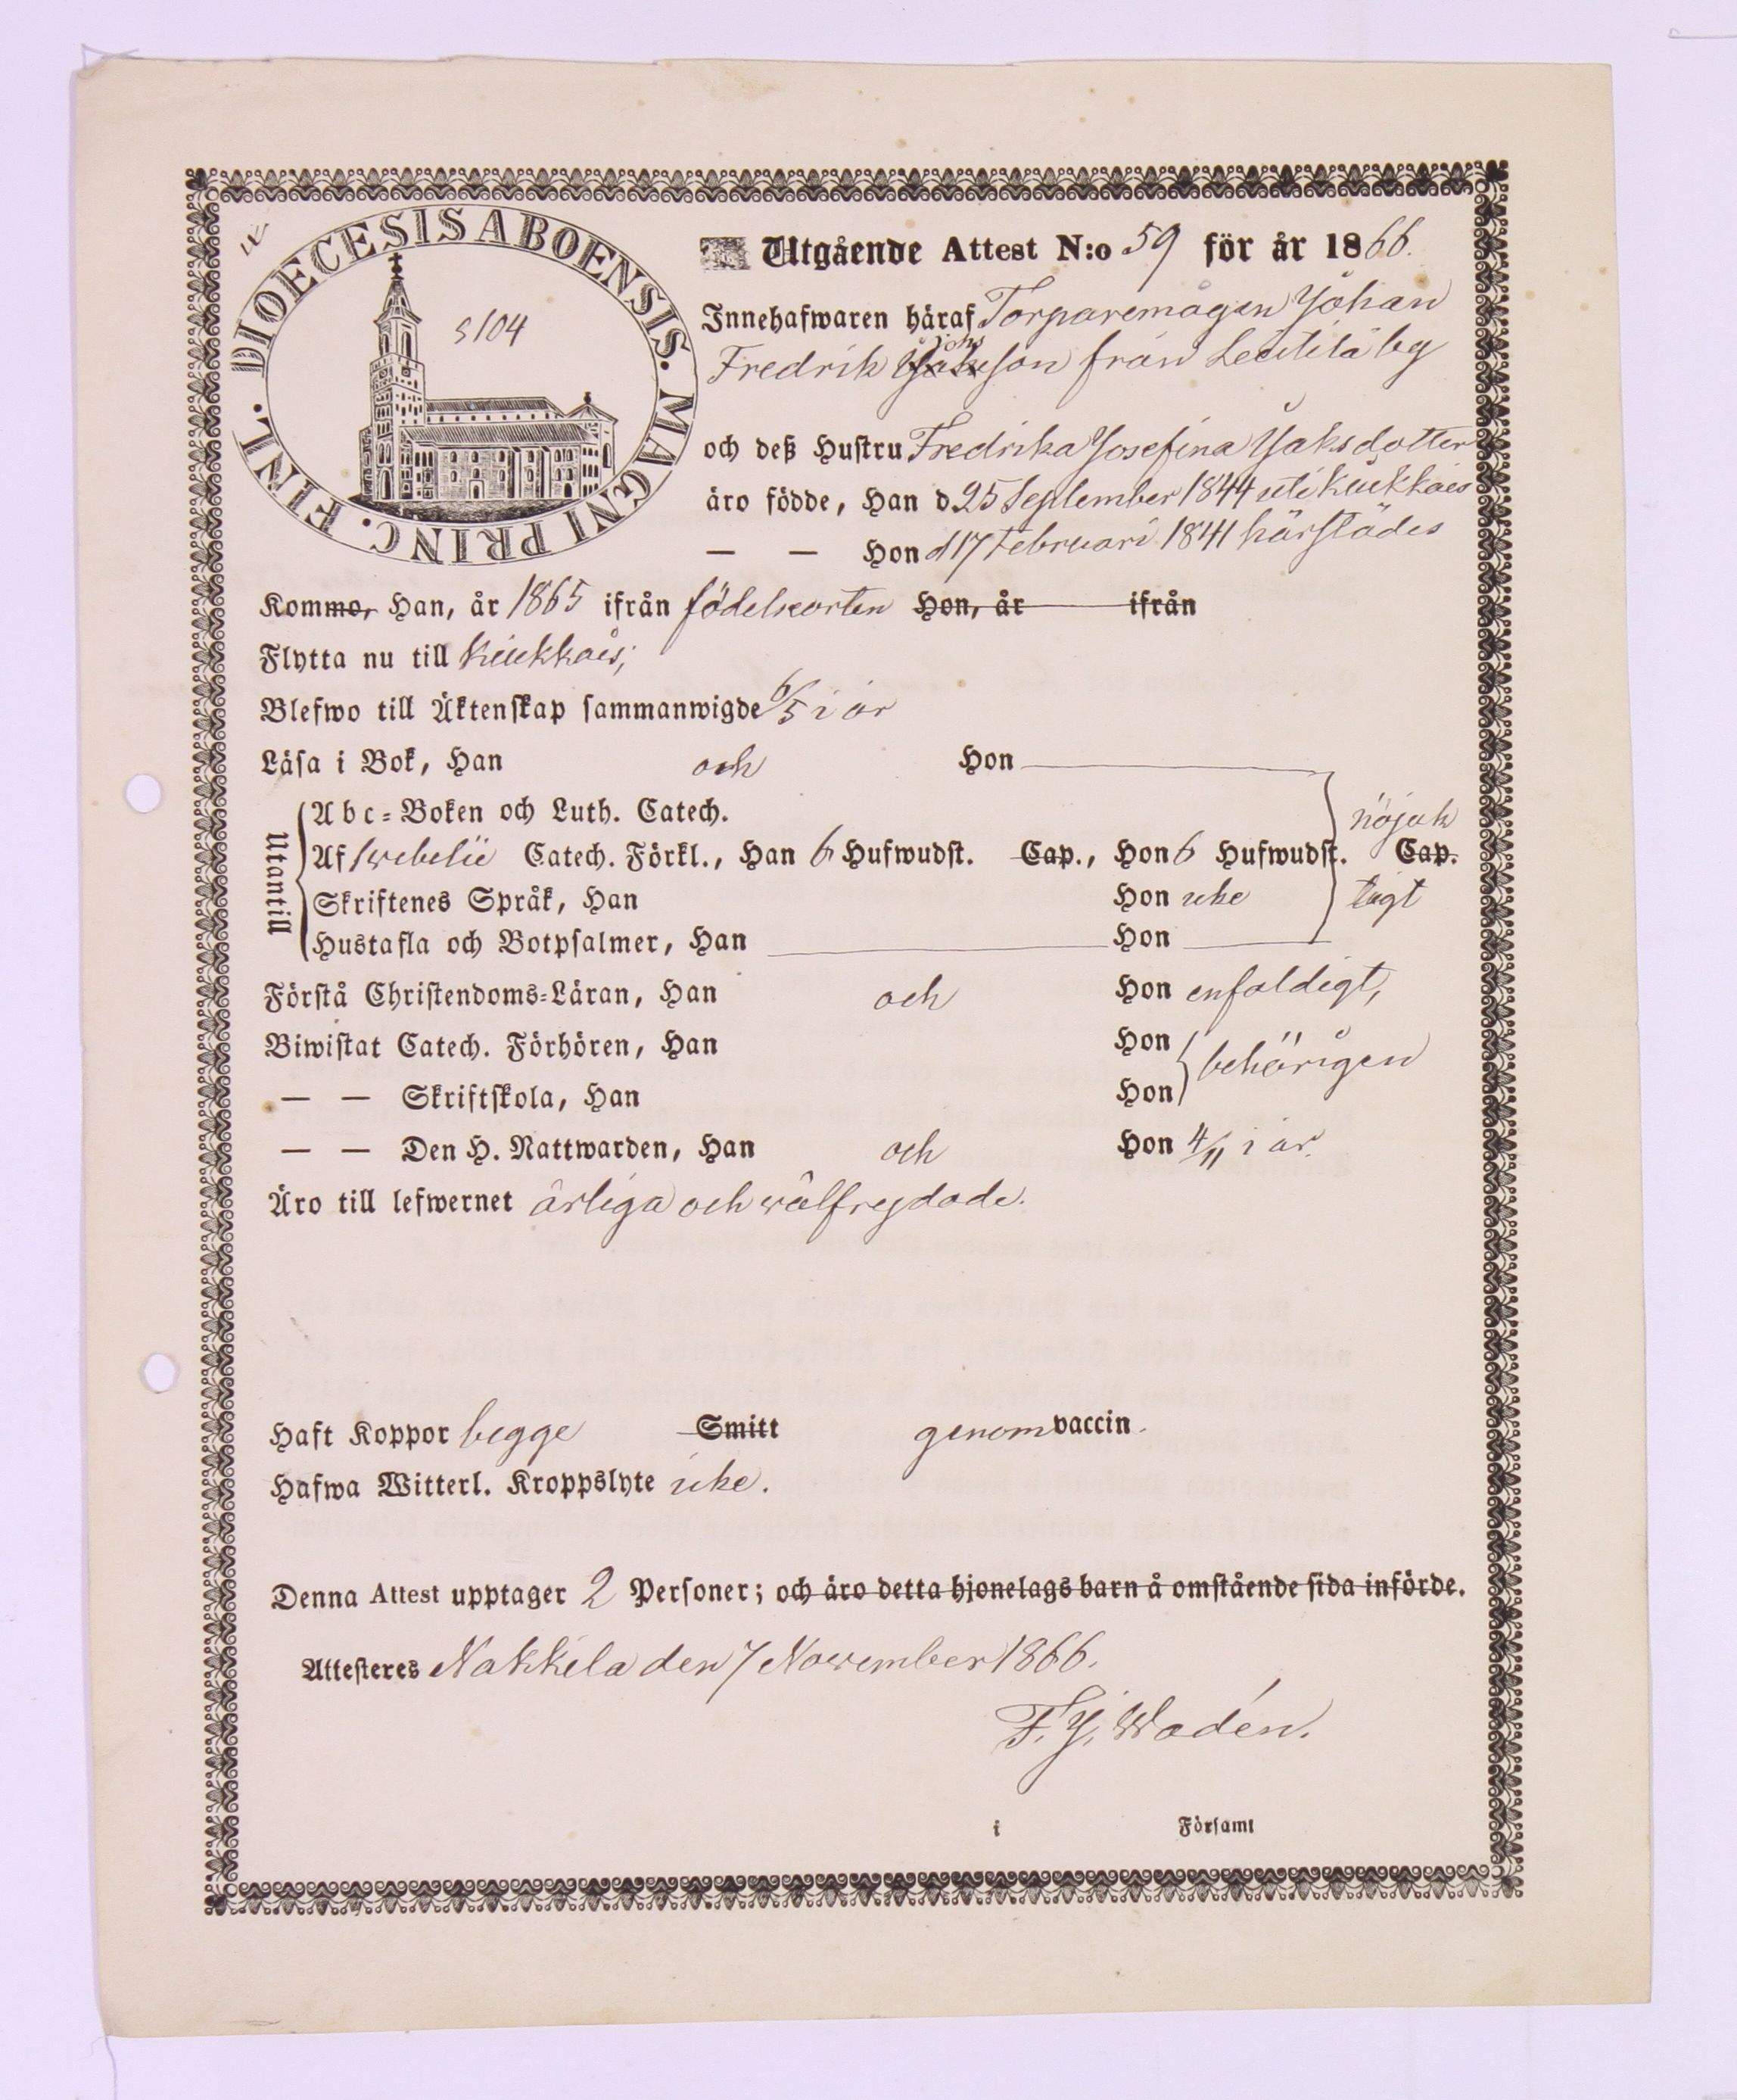 DIOECESIS ABOENSIS. MAGNI PRINC. FINL.
5104
Utgående Attest N:o 59 för år 1866.
Innehafwaren häraf Torparemågen Johan
Johs
Fredrik son från Leistilä by
och deß Hustru Fredrika Josefina Jaksdotter
äro födde, Han d 25 September 1844 uti Kiukkais
— — Hon d 17 Februari 1841 härstädes
Kommo, Han, år 1865 ifrån födelseorten Hon, år ifrån
Flytta nu till Kiukkais;
Blefwo till Äktenskap sammanwigde 6/5 i år
Läsa i Bok, Han och Hon
Utantill
Abc-Boken och Luth. Catech.
Af Swebelii Catech. Förkl., Han 6 Hufwudst. Cap., Hon 6 Hufwudst. Cap.
nöjak
tigt
Skriftenes Språk, Han Hon icke
Hustafla och Botpsalmer, Han Hon
Förstå Christendoms-Läran, Han och Hon enfaldigt,
Biwistat Catech. Förhören, Han Hon behörigen
— — Skriftskola, Han Hon
— — Den H. Nattwarden, Han och Hon 4/11 i år.
Äro till lefwernet ärliga och välfrejdade.
Haft Koppor begge Smitt genom vaccin.
Hafwa Witterl. Kroppslyte icke.
Denna Attest upptager 2 Personer; och äro detta hjonelags barn å omstående sida införde.
Attesteres Nakkila den 7 November 1866.
F. J. Wadén.
i Församl